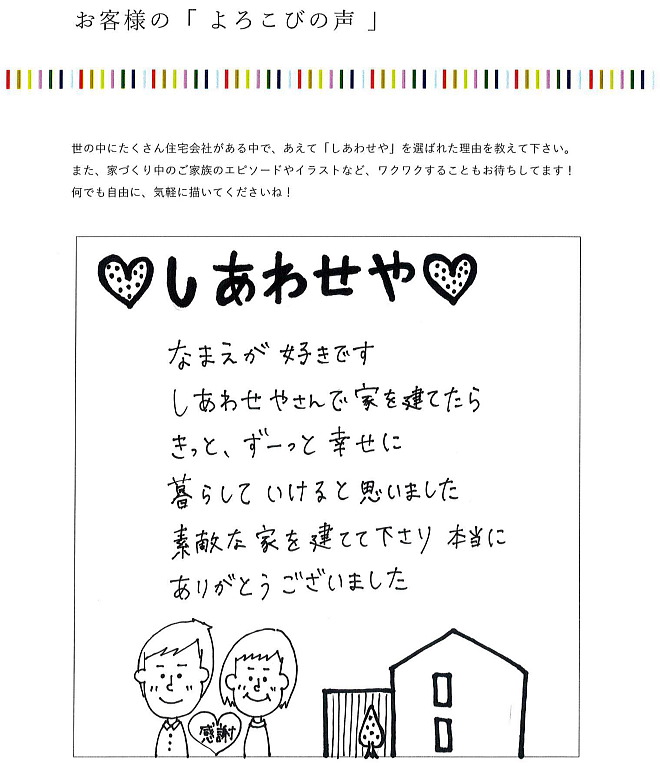 お客様の「 よろこびの声 」
世の中にたくさん住宅会社がある中で、あえて「しあわせや」を選ばれた理由を教えて下さい。
また、家づくり中のご家族のエピソードやイラストなど、ワクワクすることもお待ちしてます！
何でも自由に、気軽に描いてくださいね！
♡しあわせや♡
なまえが 好きです
しあわせやさんで 家を建てたら
きっと、ずーっと 幸せに
暮らして いけると 思いました
素敵な 家を 建てて下さり 本当に
ありがとう ございました
感謝